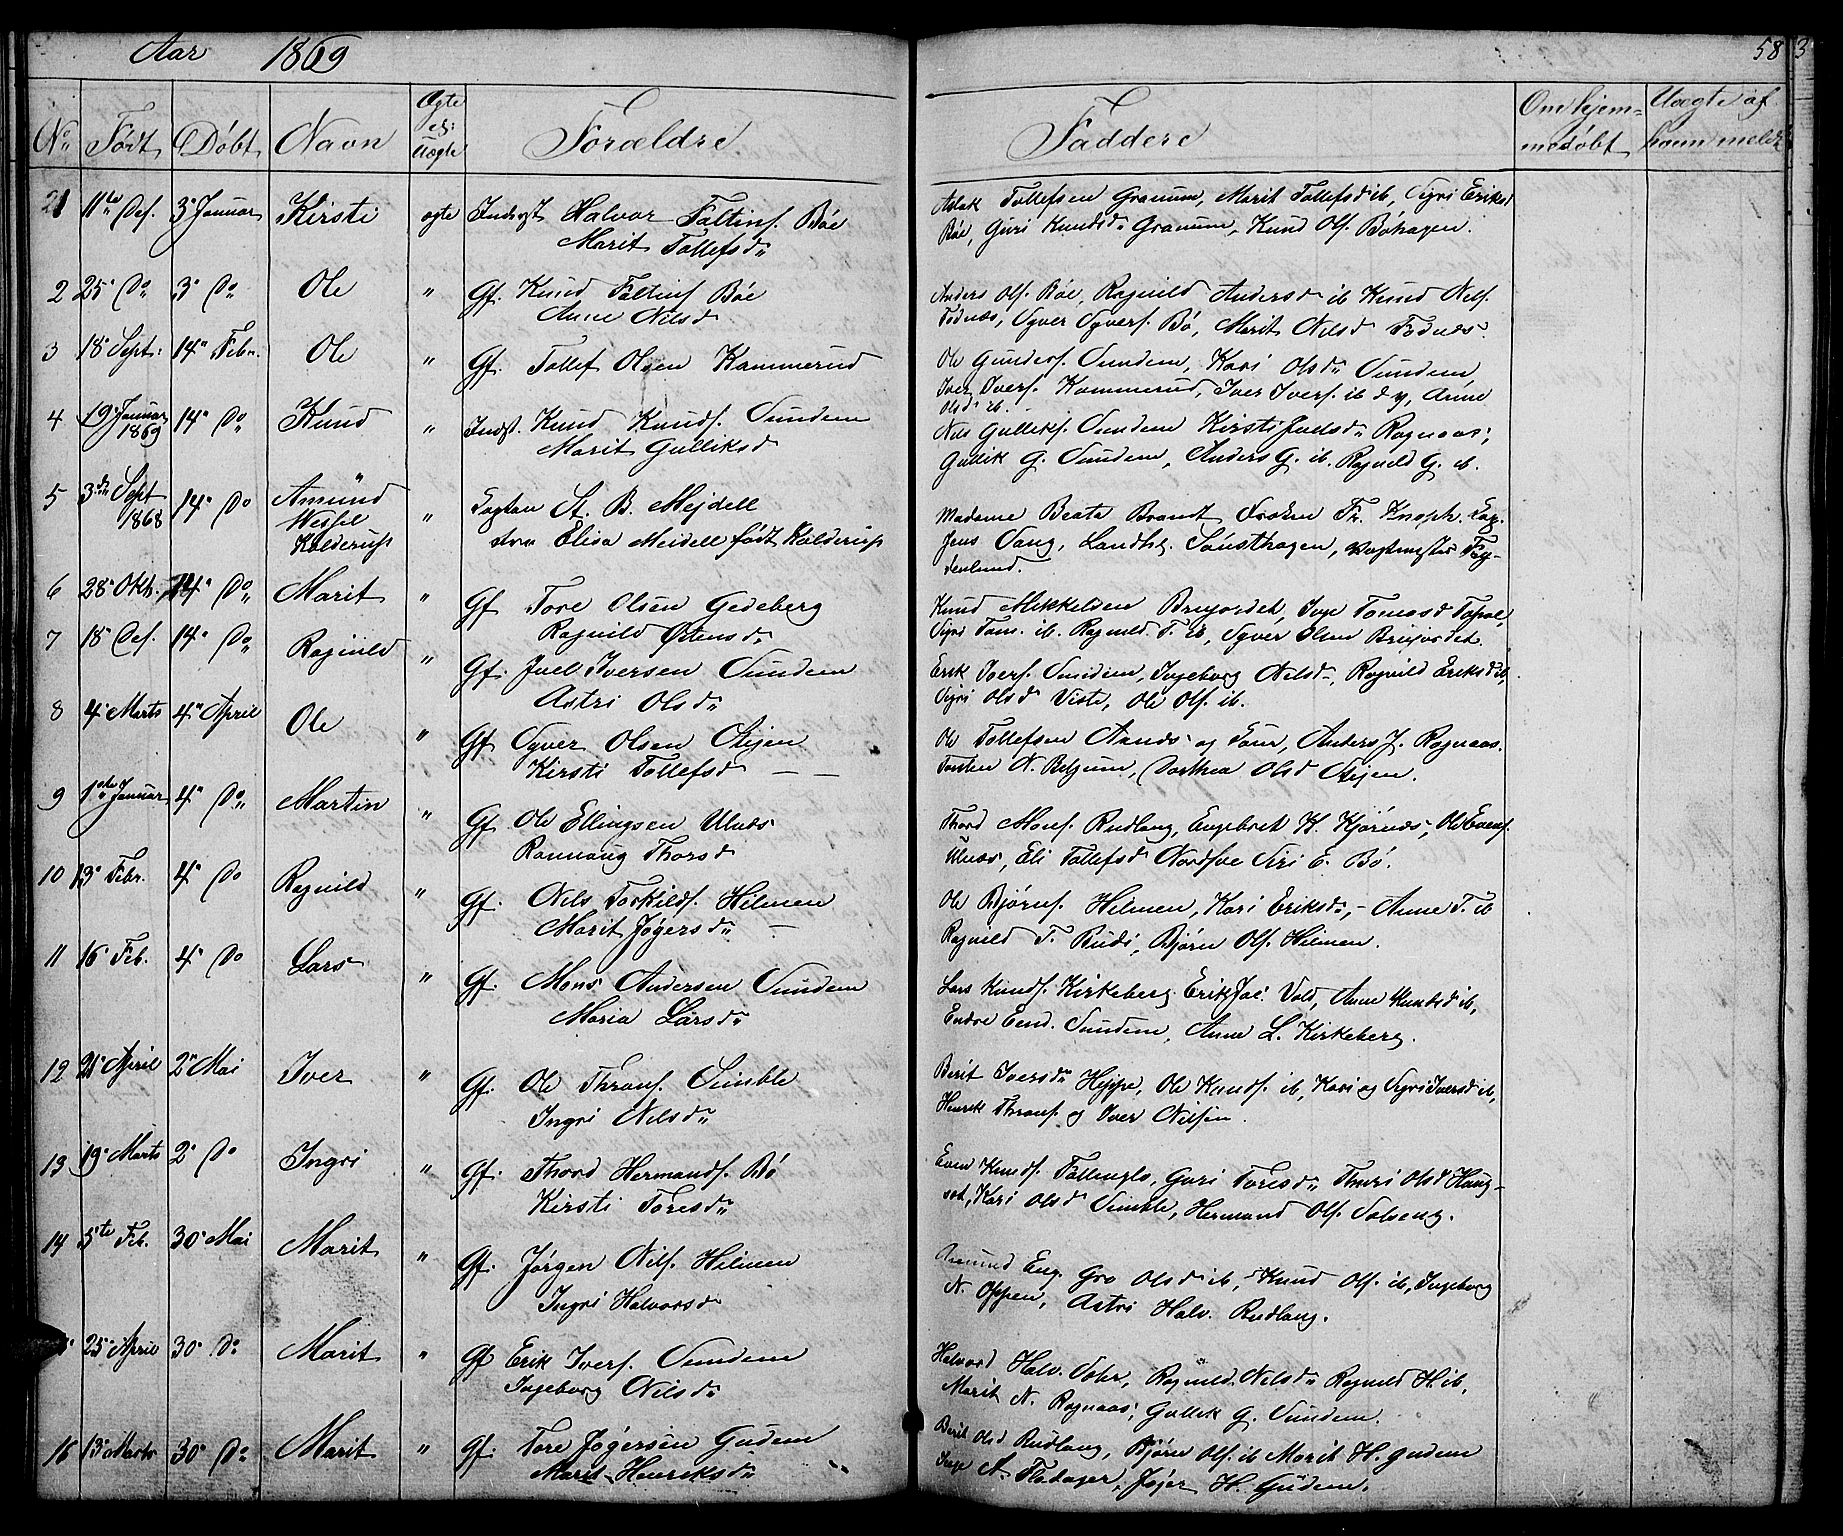 Aar 1869
58 3
No Født Døbt Navn Ægte el: Uægte Forældre Faddere Om hjemmedøbt Uægte af hvem meldt
21 11te Des. 3" Januar Kirsti ægte Indergst Halvor Faltins. Bøe
Marit Tollefsd"
Aslak Tollefsen Granum, Marit Tollefsd ib, Sigri Eriksd
Bøe, Guri Knudsd" Granum, Knud Ols. Bøhagen.
2 25" Do" 3" Do" Ole " Gf. Knud Faltins Bøe
Anne Nilsd"
Anders Ols. Bøe, Ragnild Andersd ib Knud Nils.
Fodnæs, Syver Syvers. Bø, Marit Nilsd Fodnæs.
3 18" Sept: 14" Feb". Ole " Gf. Tollef Olsen Kammerud
Ole Gunders. Sundem, Kari Olsd" Sundem
Iver Ivers. Kammerud, Iver Ivers. ib d y, Anne
Olsd ib.
4 19" Januar 1869 14" Do" Knud " Indst. Knud Knuds. Sundem
Marit Gulliksd
Nils Gulliks. Sundem Kirsti Juelsd" Ragnaas,
Gullik G. Sundem, Anders G. ib. Ragnild G. ib.
5 3de Sept 1868 14" Do Amund Wessel Kolderup " Captan St. B. Mejdell
Elisa Meidell født Kolderup
Madame Beata Brandt Frøken Fr. Knoph. Cap.
Jens Sang, Landhg. Sønsthagen, Vagtmester Fry-
denlund.
6 28" Okt. 14" Do" Marit " Gf Tore Olsen Gedeberg
Ragnild Østensd"
Knud Mikkelsen Brujordet, Inge Tomasd
Sigri Tom. ib. Ragnild T. ib, Syver Olsen Brujordet.
7 18" Des. 14" Do" Ragnild " Gf. Juel Iversen Sundem
Astri Olsd"
Erik Ivers. Sundem, Ingeborg Nilsd", Ragnild Eriksd ib,
Sigri Olsd Viste, Ole Ols. ib.
8 4" Marts 4" April Ole " Gf Syver Olsen Stejen
Kirsti Tollefsd
Ole Tollefsen Aanæs og Anders J. Ragnaas.
Torsten N. Belgum, Dorthea Olsd Stejen.
9 1ste Januar 4" Do" Martin " Gf Ole Ellingsen Ulnæs
Rannaug Thorsd"
Thord Mons. Rudlang, Engebret K. Kjørnæs, Ole Evens.
Ulnæs, Eli Tollefsd Nordsve Siri E. Bø.
10 13" Febr. 4" Do Ragnild " Gf. Nils Torkilds. Hilmen
Marit Jøgersd"
Ole Bjørns. Hilmen, Kari Eriksd", Anne T. ib
Ragnild T. Rudi, Bjørn Ols. Hilmen.
11 16" Feb. 4" Do Lars " Gf. Mons Andersen Sundem
Maria Larsd"
Lars Knuds. Kirkeberg, Erik Joel. Vold, Anne Knudsd ib,
Endre End. Sundem, Anne L. Kirkeberg.
12 21" April 2" Mai Iver " Gf. Ole Throns. Semble
Ingri Nilsd"
Berit Iversd" Hippe, Ole Knuds. ib, Kari og Sigri Iversd ib,
Henrik Throns. og Iver Nilsen.
13 19" Marts 2" Do Ingri " Gf. Thord Hermands. Bø
Kirsti Toresd"
Even Knuds. Tollengls, Guri Toresd" Thori Olsd Haug-
set, Kari Olsd" Semble, Hermand Ols. Solseng.
14 5te Feb. 30" Mai Marit " Gf. Jørgen Nils. Hilmen
Ingri Halvorsd"
Amund Eng. Gro Olsd ib, Knud Ols. ib, Ingeborg
N. Oppen, Astri Halv. Rudlang.
25" April 30" Do Marit " Gf Erik Ivers. Sundem
Ingeborg Nilsd"
Halvord Halv. Sohr, Ragnild Nilsd" Ragnild H. ib,
Marit N. Ragnaas, Gullik G. Sundem.
16 13" Marts 30" Do Marit " Gf. Tore Jøgersen Gudem
Marit Henriksd"
Berit Olsd Rudlang, Bjørn Ols. ib Marit H. Gudem
Inge A. Flodager, Jøger H. Gudem.